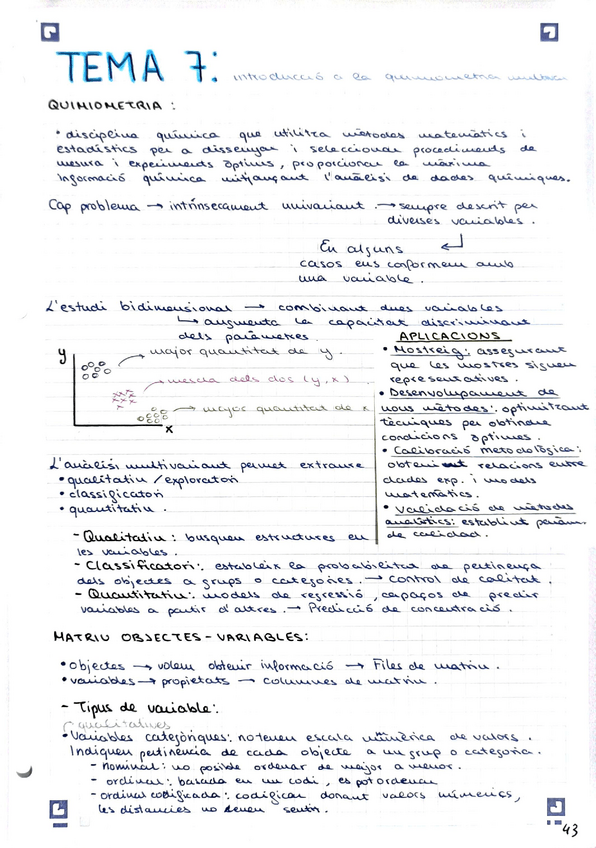 TEMA 7: introducció a la quimiometria
QUIMIOMETRIA :
• disciplina química que utilitza mètodes matemàtics i
estadístics per a dissenyar i seleccionar procediments de
mesura i experiments òptims, proporcionar la màxima
Informació química mitjançant l'anàlisi de dades químiques.
Cap problema → intrínsecament univariant. → sempre descrit per
diverses variables.
En alguns
casos ens conformem amb
una variable.
L'estudi bidimensional → combinant dues variables
↳ augmenta la capacitat discriminant
dels paràmetres.
y
major quantitat de y.
mescla dels dos (y,x)
major quantitat de x
x
APLICACIONS
• Mostreig: assegurant
que les mostres siguen
representatives.
• Desenvolupament de
nous mètodes: optimitzant
tècniques per obtindre
condicions òptimes.
• Calibració metodològica:
obtenint relacions entre
dades exp. i models
matemàtics.
• Validació de mètodes
analítics: establint paràm.
de calidad.
L'anàlisi multivariant permet extraure
• qualitatiu / exploratori
• classificatori
• quantitatiu.
- Qualitatiu: busquen estructures en
les variables.
- Classificatori: estableix la probabilitat de pertinença
dels objectes a grups o categories. → control de calitat.
- Quantitatiu: models de regressió, capaços de predir
variables a partir d'altres. → Predicció de concentració.
MATRIU OBJECTES-VARIABLES:
• objectes → volem obtenir informació → Files de matriu.
• variables → propietats → columnes de matriu.
- Tipus de variable:
qualitatives
• Variables categòriques: no tenen escala numèrica de valors.
Indiquen pertinença de cada objecte a un grup o categoria.
- nominal: no posible ordenar de major a menor.
- ordinal: basada en un codi, es pot ordenar
- ordinal codificada: codificar donant valors númerics,
les distancies no tenen sentit.
43